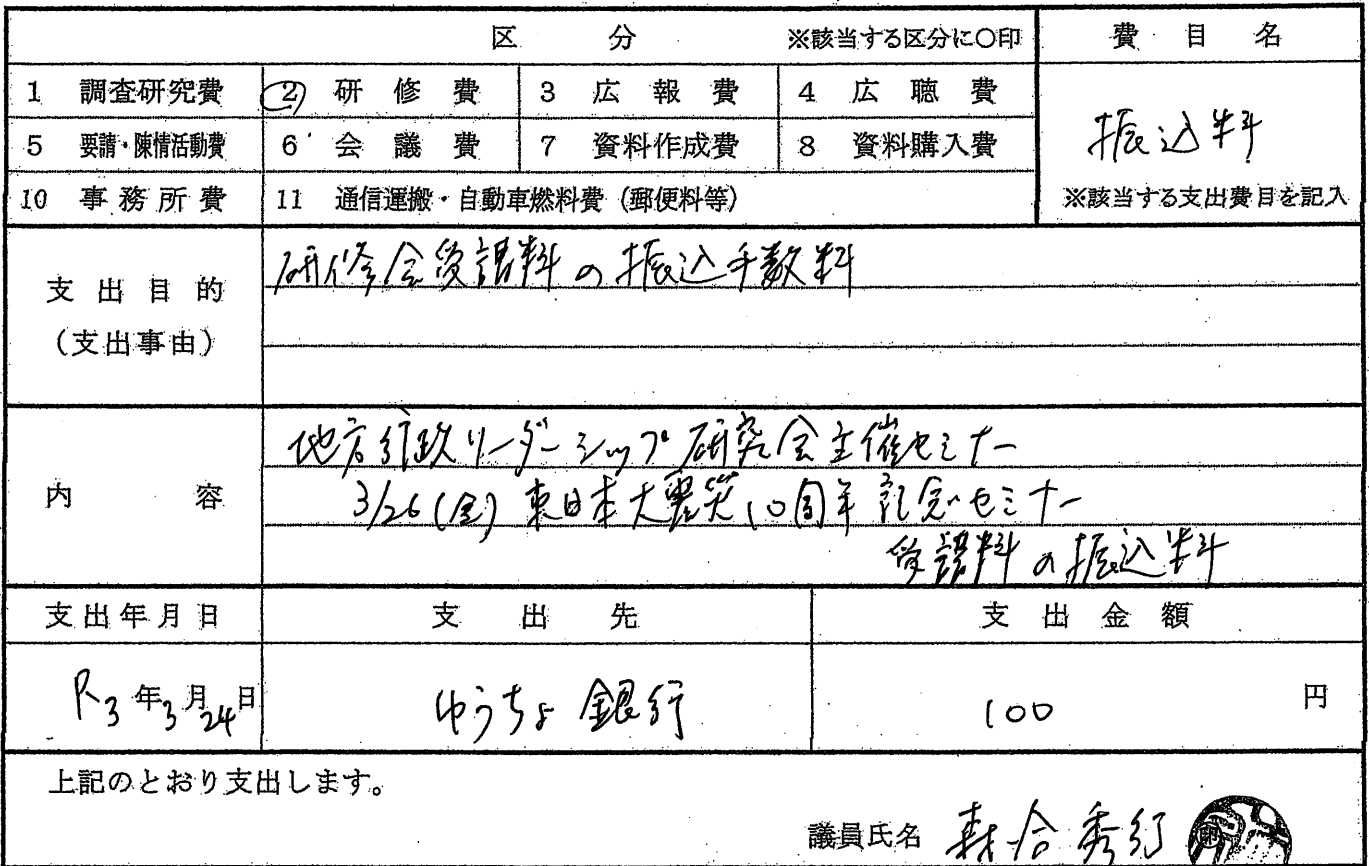 区 分 ※該当する区分に○印 費目名
1 調査研究費 2 研修費 3 広報費 4 広聴費
振込料
5 要請・陳情活動費 6 会議費 7 資料作成費 8 資料購入費
10 事務所費 11 通信運搬・自動車燃料費(郵便料等) ※該当する支出費目を記入
支出目的
(支出事由)
研修会受講料の振込手数料
内容
地方行政リーダーシップ研究会主催セミナー
3/26(金)東日本大震災10周年記念セミナー
受講料の振込料
支出年月日 支出先 支出金額
R3年3月24日 ゆうちょ銀行 100 円
上記のとおり支出します。
議員氏名 森合秀行